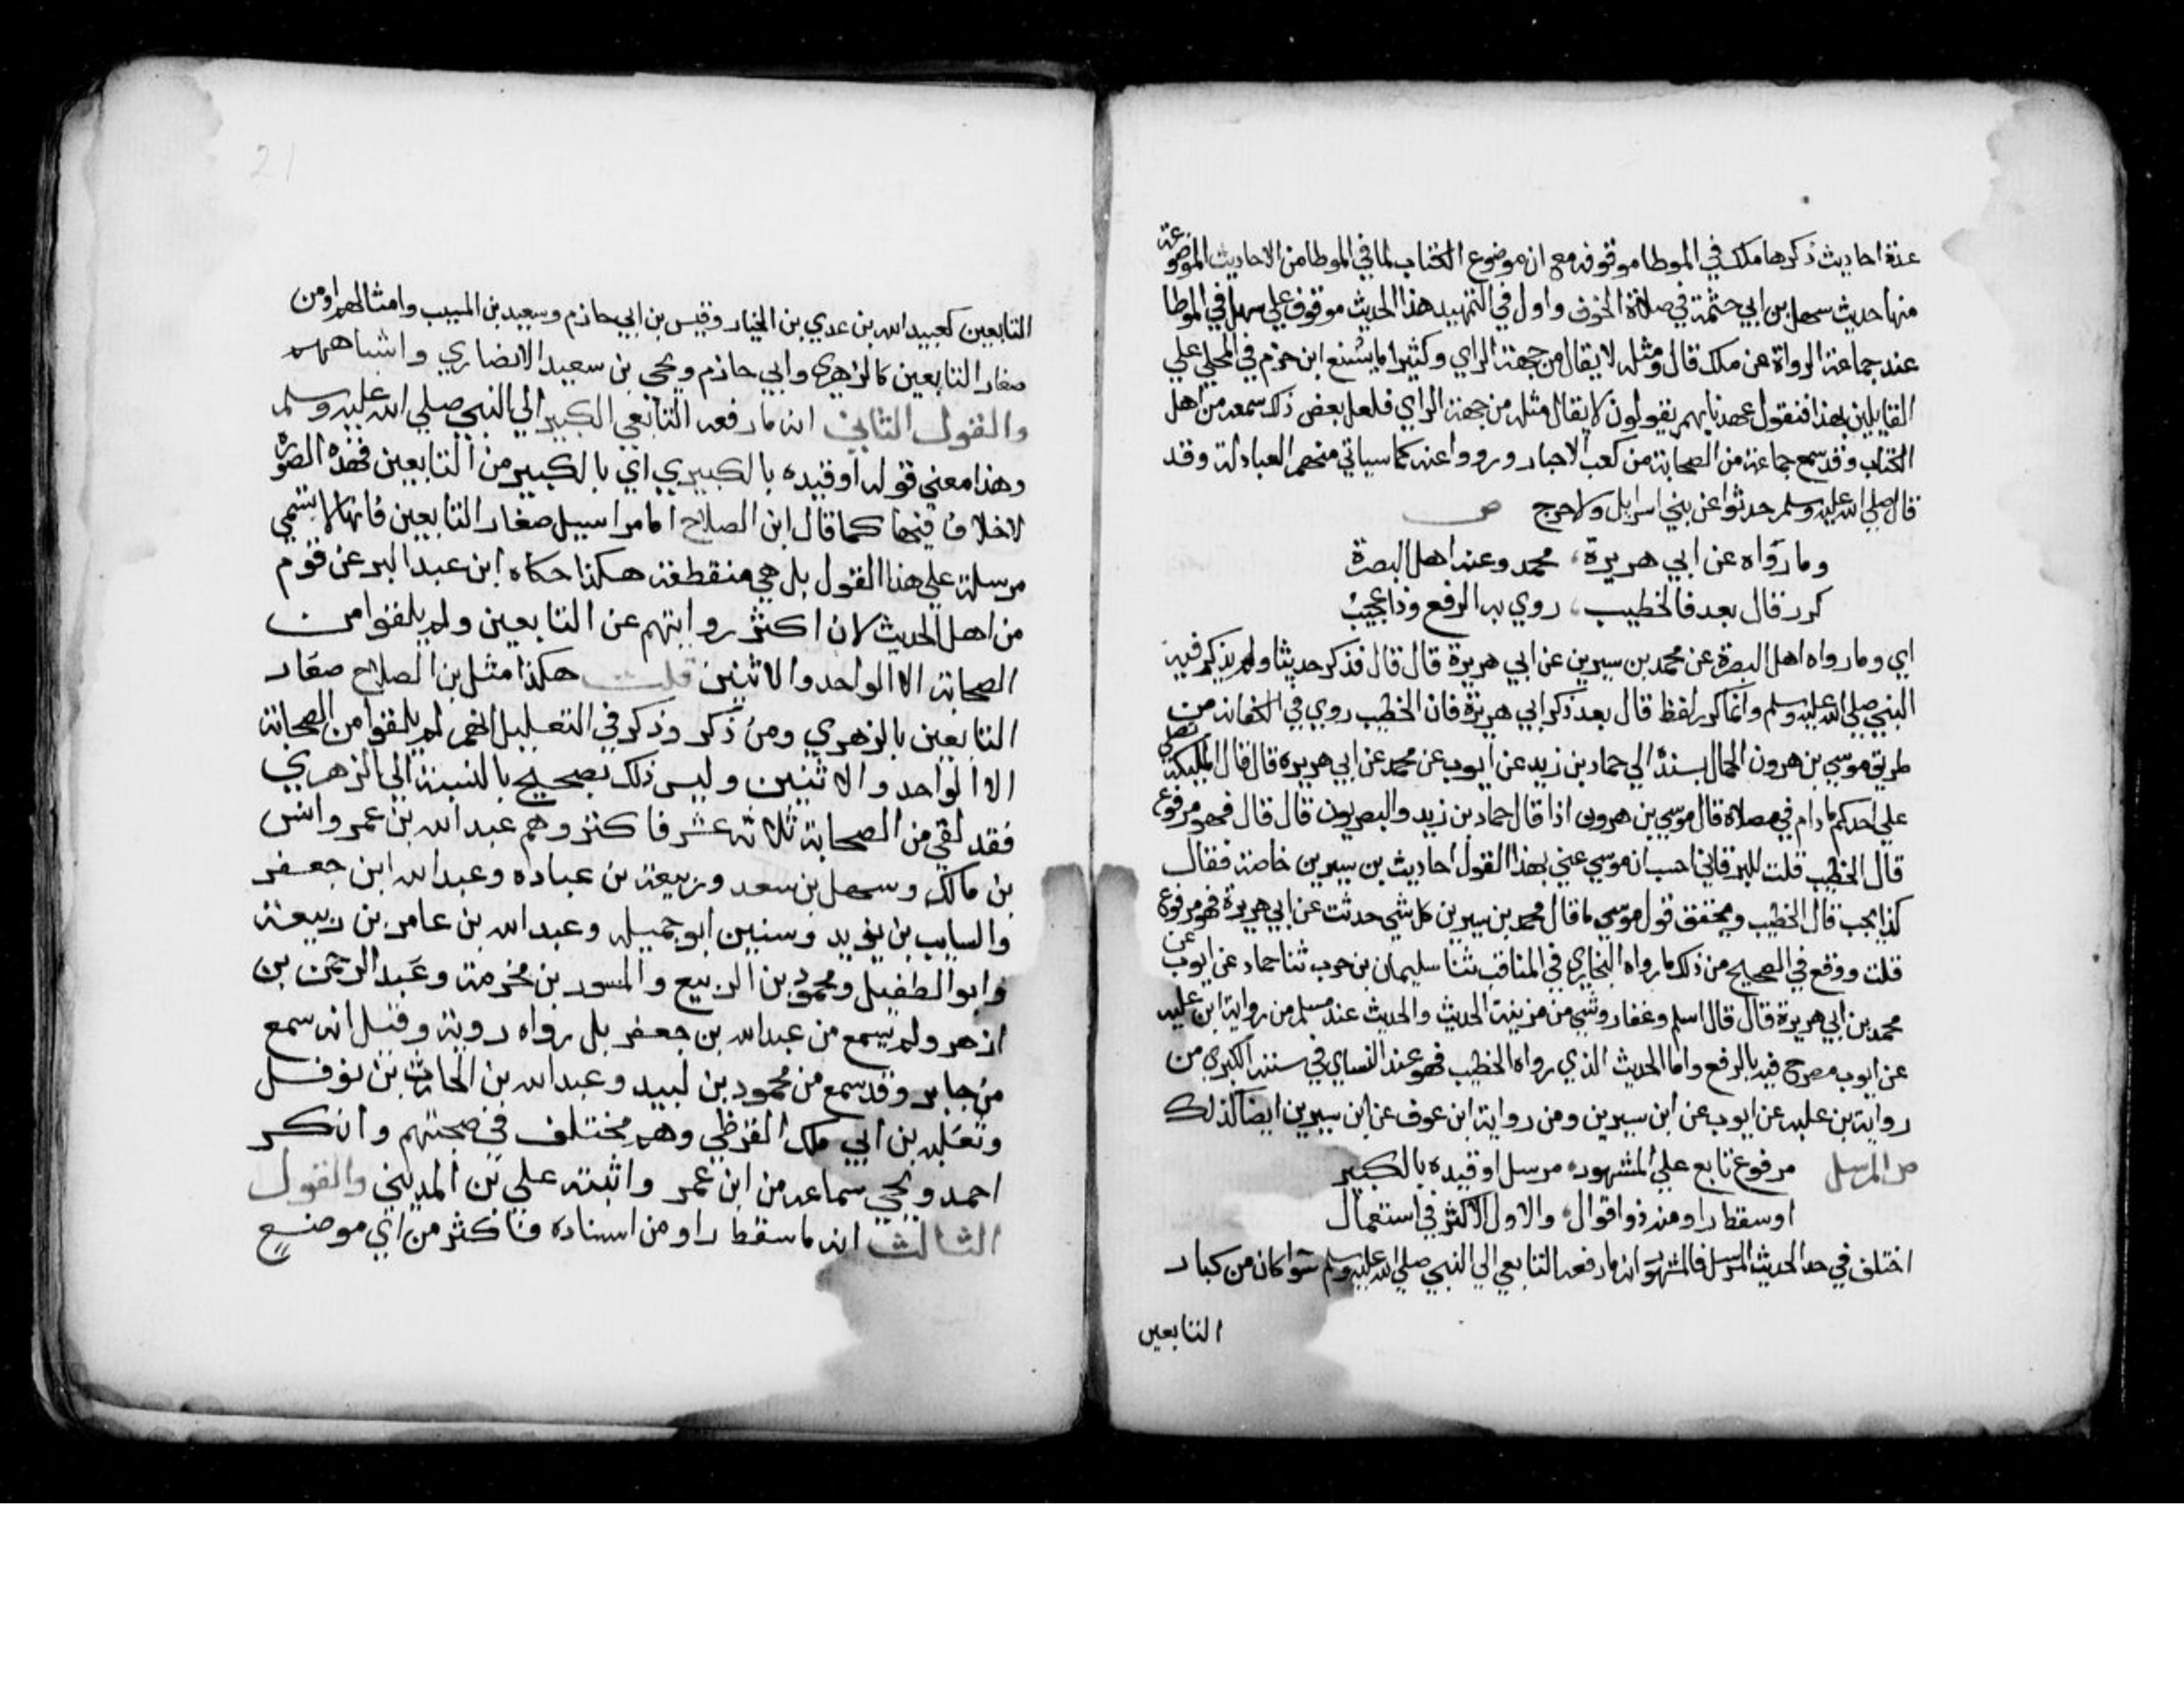 عدة احاديث ذكرها ملك في الموطا موقوفه مع ان موضوع الكتاب لما في الموطا من الاحاديث الموضوعة
منها حديث سهل بن ابي حثمة في صلاة الخوف واول في التمهيد هذا الحديث موقوف علي سهل في الموطا
عند جماعة الرواة عن ملك قال ومثله لا يقال من جهة الراي وكثيرا ما يشنع ابن حزم في المحلي علي
القايلين بهذا فنقول عهدنابهم يقولون لا يقال مثله من جهة الراي فلعل بعض ذلك سمعه من اهل
الكتاب وقد سمع جماعة من الصحابة من كعب الاحبار ورووا عنه كما سياتي منهم العبادلة وقد
قال صلي الله عليه وسلم حدثوا عن بني اسرايل ولا حرج ص
وما رواه عن ابي هريرة، محمد وعنه اهل البصرة
كرر قال بعد فالخطيب، روي به الرفع وذا عجيب
اي وما رواه اهل البصرة عن محمد بن سيرين عن ابي هريرة قال قال فذكر حديثا ولم يذكر فيه
النبي صلي الله عليه وسلم وانما كرر لفظ قال بعد ذكر ابي هريرة فان الخطيب روي في الكفاية من
طريق موسي بن هرون الحمال بسنده الي حماد بن زيد عن ايوب عن محمد عن ابي هريرة قال قال المليكة تصلي
علي احدكم ما دام في مصلاه قال موسي بن هرون اذا قال حماد بن زيد والبصريون قال قال فهو مرفوع
قال الخطيب قلت للبرقاني احسب ان موسي عني بهذا القول احاديث بن سيرين خاصة فقال
كذا يجب قال الخطيب ويحقق قول موسي ما قال محمد بن سيرين كل شي حدثت عن ابي هريرة فهو مرفوع
قلت ووقع في الصحيح من ذلك ما رواه البخاري في المناقب ثنا سليمان بن حرب ثنا حماد عن ايوب عن
محمد بن ابي هريرة قال قال اسلم وغفار وشي من مزينة الحديث والحديث عند مسلم من رواية ابن عليه
عن ايوب مصرح فيه بالرفع واما الحديث الذي رواه الخطيب فهو عند النساي في سننه الكبري من
رواية بن عليه عن ايوب عن ابن سيرين ومن رواية ابن عوف عن ابن سيرين ايضا كذلك
ص المرسل مرفوع تابع علي المشهور، مرسل او قيده بالكبير
او سقط راو منه ذو اقوال، والاول الاكثر في استعمال
اختلف في حد الحديث المرسل فالمشهور انه ما رفعه التابعي الي النبي صلي الله عليه وسلم سوا كان من كبار
التابعين
21
التابعين كعبيد الله بن عدي بن الخيار وقيس بن ابي حازم وسعيد بن المسيب وامثالهم او من
صغار التابعين كالزهري وابي حازم ويحي بن سعيد الانصاري واشباههم
والقول الثاني انه ما رفعه التابعي الكبير الي النبي صلي الله عليه وسلم
وهذا معني قوله او قيده بالكبيري اي بالكبير من التابعين فهذه الصورة
لا خلاف فيها كما قال ابن الصلاح اما مراسيل صغار التابعين فانها لا تسمي
مرسلة علي هذا القول بل هي منقطعة هكذا حكاه ابن عبد البر عن قوم
من اهل الحديث لان اكثر روايتهم عن التابعين ولم يلقوا من
الصحابة الا الواحد والاثنين قلت هكذا مثل بن الصلاح صغار
التابعين بالزهري ومن ذكر وذكر في التعليل انهم لم يلقوا من الصحابة
الا الواحد والاثنين وليس ذلك بصحيح بالنسبة الي الزهري
فقد لقي من الصحابة ثلاثة عشر فاكثر وهم عبد الله بن عمر وانس
بن مالك وسهل بن سعد وربيعة بن عباده وعبد الله ابن جعفر
والسايب بن يزيد وسنين ابو جميله وعبد الله بن عامر بن ربيعة
وابو الطفيل ومحمود بن الربيع والمسور بن مخرمة وعبد الرحمن بن
ازهر ولم يسمع من عبد الله بن جعفر بل رواه روية وقيل انه سمع
من جابر وقد سمع من محمود بن لبيد وعبد الله بن الحارث بن نوفل
وثعلبه بن ابي ملك القرظي وهم مختلف في صحبتهم وانكر
احمد ويحي سماعه من ابن عمر واثبته علي بن المديني والقول
الثالث انه ما سقط راو من اسناده فاكثر من اي موضع